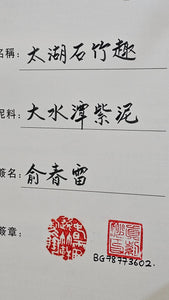 名稱：太湖石竹趣
泥料：大水潭紫泥
簽名：俞春雷
簽章：
BG98773602.